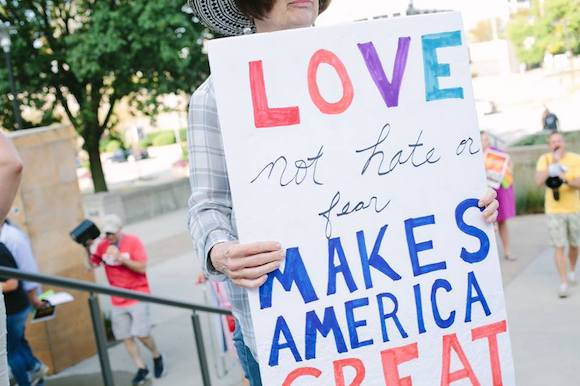 LOVE
not hate or
fear
MAKES
AMERICA
GREAT